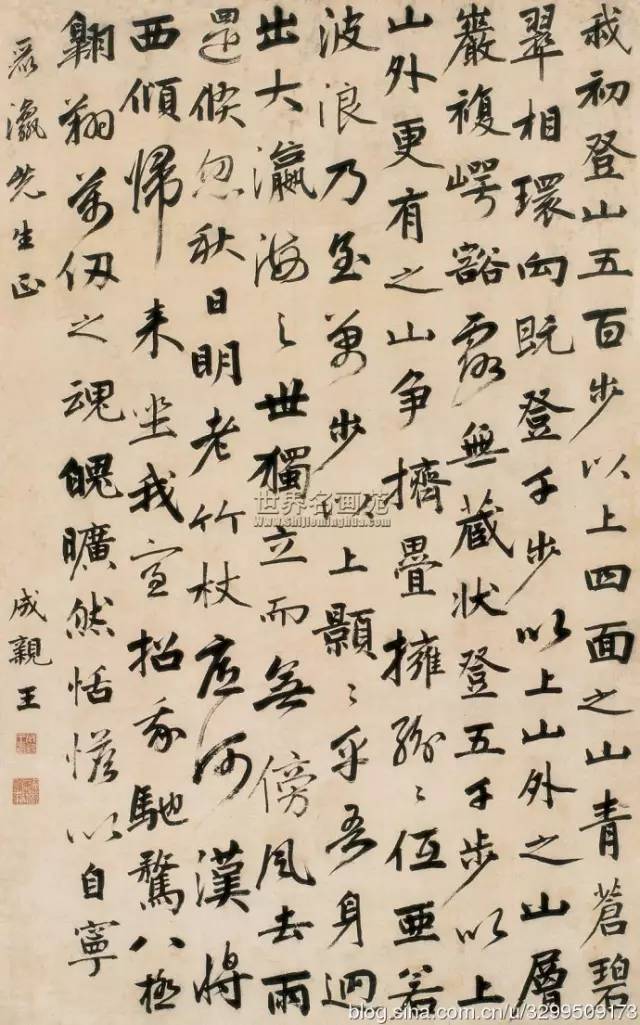 我初登山五百步以上四面之山青蒼碧
翠相環向既登千步以上山外之山層
巖複崿豁露無藏狀登五千步以上
山外更有之山爭擠疊擁紛〻伍亞若
波浪乃至萬步以上顥〻乎吾身迥
出大瀛海之世獨立而無傍風去雨
還倏忽秋日明老竹杖底河漢將
西傾歸來坐我室招我馳騖八極
翱翔萬仞之魂魄曠然恬憺以自寧
瀛先生正
成親王
世界名画苑
www.shijieminghua.com
blog.sina.com.cn/u/3299509173